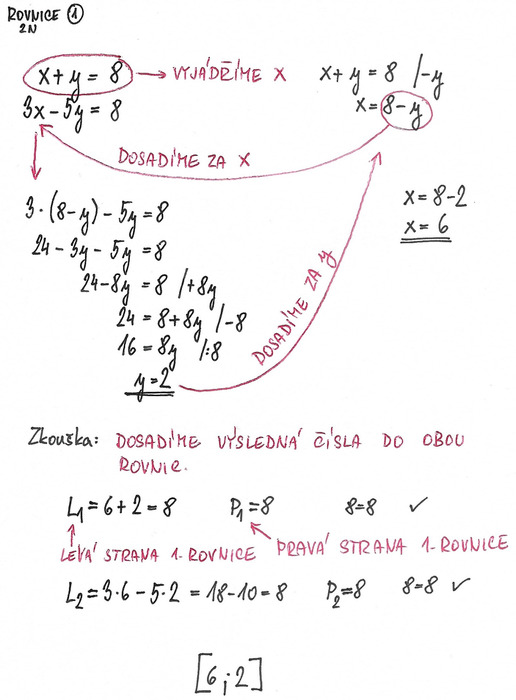 ROVNICE ①
2N
x + y = 8 → VYJÁDŘÍME X
3x - 5y = 8
x + y = 8 /-y
x = 8 - y
DOSADÍME ZA X
3·(8-y) - 5y = 8
24 - 3y - 5y = 8
24 - 8y = 8 /+8y
24 = 8 + 8y /-8
16 = 8y /:8
y = 2
DOSADÍME ZA y
x = 8 - 2
x = 6
Zkouška: DOSADÍME VÝSLEDNÁ ČÍSLA DO OBOU
ROVNIC.
L₁ = 6 + 2 = 8 P₁ = 8 8 = 8 ✓
LEVÁ STRANA 1. ROVNICE PRAVÁ STRANA 1. ROVNICE
L₂ = 3·6 - 5·2 = 18 - 10 = 8 P₂ = 8 8 = 8 ✓
[6;2]